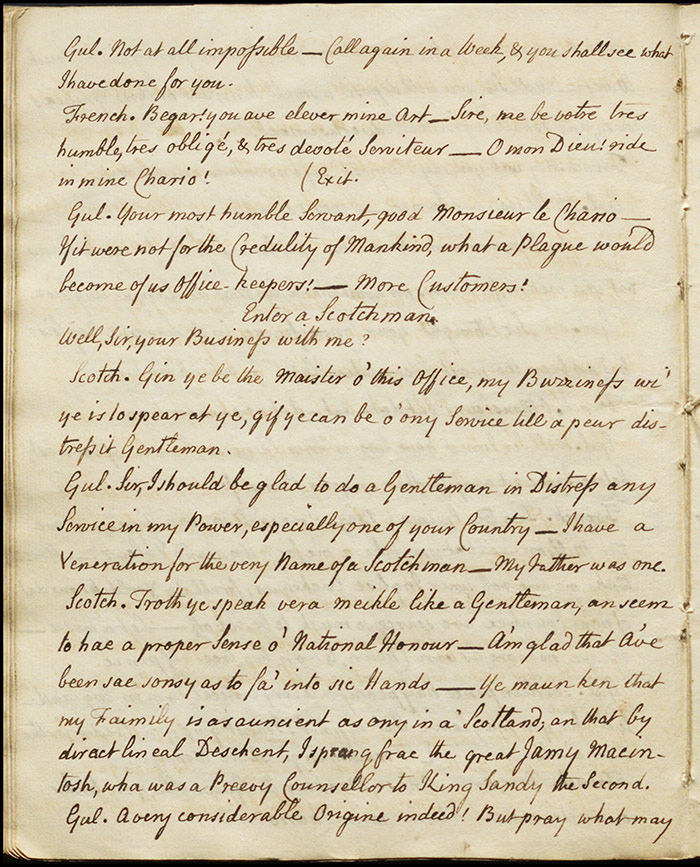 Gul. Not at all impossible — Call again in a Week, & you shall see what
I have done for you.
French. Begar! you ave elever mine Art — Sire, me be votre tres
humble, tres obligé, & tres devoté Serviteur — O mon Dieu! ride
in mine Chario! (Exit.
Gul. Your most humble Servant, good Monsieur le Chario —
If it were not for the Credulity of Mankind, what a Plague would
become of us Office-keepers! — More Customers!
Enter a Scotchman.
Well, Sir, your Business with me?
Scotch. Gin ye be the Maister o' this Office, my Buzziness wi'
ye is to spear at ye, gif ye can be o' ony Service till a peur dis-
tressit Gentleman.
Gul. Sir, I should be glad to do a Gentleman in Distress any
Service in my Power, especially one of your Country — I have a
Veneration for the very Name of a Scotchman — My Father was one.
Scotch. Troth ye speak vera meikle like a Gentleman, an seem
to hae a proper Sense o' National Honour — A'm glad that A've
been sae sonsy as to fa' into sic Hands — Ye maun ken that
my Faimily is as auncient as ony in a' Scotland; an that by
direct lineal Deschent, I sprang frae the great Jamy Macin-
tosh, wha was a Preevy Counsellor to King Sandy the Second.
Gul. A very considerable Origine indeed! But pray what may